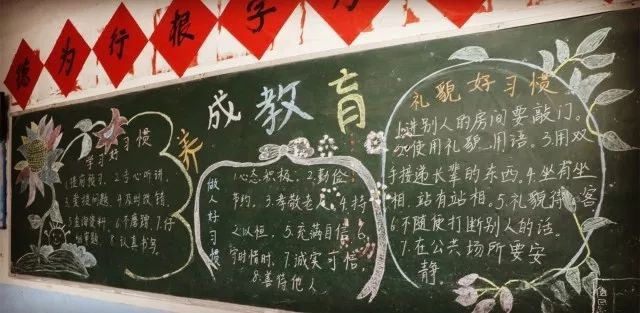 练为行根字
养成教育
学习好习惯
1.提前预习。2.专心听讲。
3.爱提问题。4.及时改错。
5.查阅资料。6.不磨蹭。7.仔
细审题。8.认真书写。
做人好习惯
1.心态积极。2.勤俭
节约。3.孝敬老人。4.持
之以恒。5.充满自信。6.
守时惜时。7.诚实可信。
8.善待他人。
礼貌好习惯
1.进别人的房间要敲门。
2.使用礼貌用语。3.用双
手接递长辈的东西。4.坐有坐
相，站有站相。5.礼貌待客
6.不随便打断别人的话。
7.在公共场所要安
静。